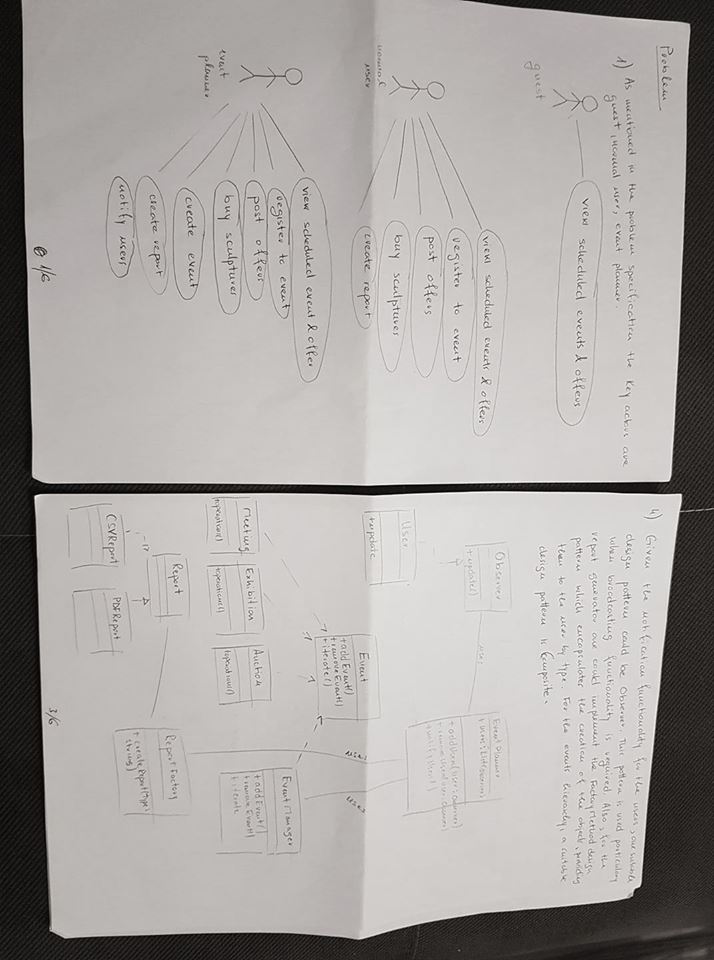 Problem
1) As mentioned in the problem specification the key actors are
guest, normal user, event planner.
view scheduled events & offers
guest
view scheduled events & offers
register to event
post offers
buy sculptures
create report
normal
user
view scheduled event & offer
register to event
post offers
buy sculptures
create event
create report
notify users
event
planner
1/6
4) Given the notification functionality for the users, one suitable
design pattern could be Observer. This pattern is used particulary
when broadcasting functionality is required. Also, for the
report generator one could implement the Factory Method design
pattern which encapsulates the creation of the objects, providing
them to the user by type. For the events hierarchy, a suitable
design pattern is Composite.
Observer
+update()
uses
Event Planner
+ users: List<Observer>
+ addUser(user: Observer)
+ removeUser(user: Observer)
+ notifyUser()
User
+update
Event
+add Event()
+remove Event()
+iterate()
uses
uses
Meeting
+operations()
Exhibition
+operations()
Auction
+operations()
Event Manager
+add Event()
+remove Event()
+iterate
Report
Report Factory
+ create Report(Type:
string)
CSVReport
PDFReport
3/6